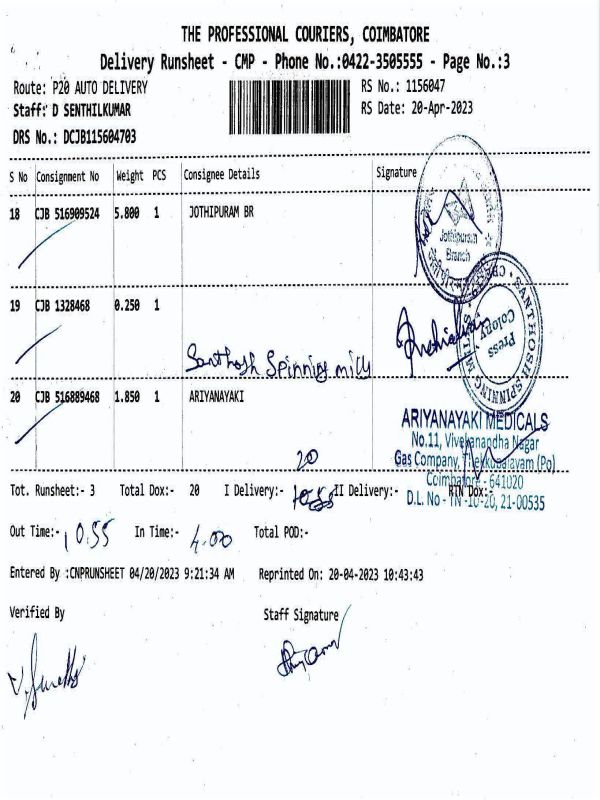 THE PROFESSIONAL COURIERS, COIMBATORE
Delivery Runsheet - CMP - Phone No.:0422-3505555 - Page No.:3
Route: P20 AUTO DELIVERY
RS No.: 1156047
Staff: D SENTHILKUMAR
RS Date: 20-Apr-2023
DRS No.: DCJB115604703
S No Consignment No Weight PCS Consignee Details Signature
18 CJB 516909524 5.800 1 JOTHIPURAM BR
Jothipuram
Branch
19 CJB 1328468 0.250 1
Santhosh Spinning mills
SANTHOSH SPINNING
Press
Colony
20 CJB 516889468 1.850 1 ARIYANAYAKI
ARIYANAYAKI MEDICALS
No.11, Vivekanandha Nagar
Gas Company, Thekkupalayam (Po)
Coimbatore - 641020
D.L. No - TN -10-20, 21-00535
20
Tot. Runsheet:- 3 Total Dox:- 20 I Delivery:- II Delivery:- RTN Dox:-
Out Time:- 10.55 In Time:- 4.00 Total POD:-
Entered By :CNPRUNSHEET 04/20/2023 9:21:34 AM Reprinted On: 20-04-2023 10:43:43
Verified By Staff Signature